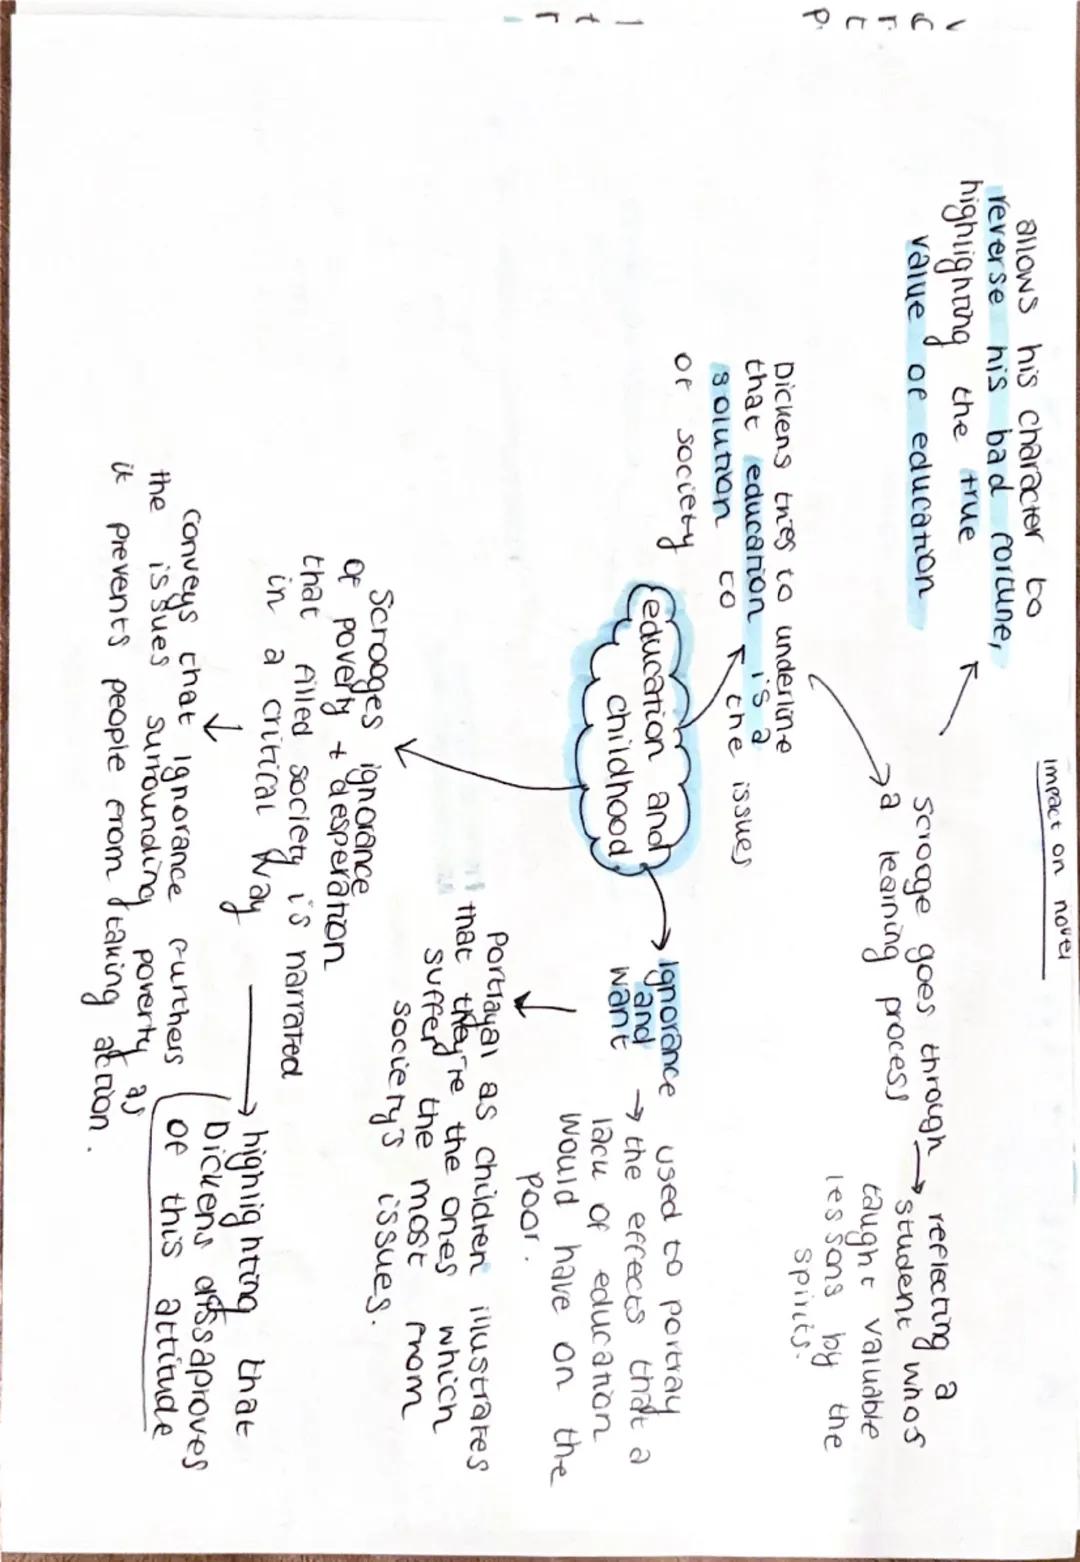 impact on novel
allows his character to
reverse his bad fortune,
highlighting the true
value of education
Scrooge goes through
a learning process
reflecting a
student whos
taught valuable
lessons by the
spirits.
Dickens tries to underline
that education is a
solution to the issues
of society
education and
childhood
ignorance
and
want
used to portray
the effects that a
lack of education
would have on the
poor.
Portrayal as children illustrates
that they're the ones which
suffer the most from
society's issues.
Scrooges ignorance
of poverty + desperation
that filled society is narrated
in a critical way
highlighting that
Dickens dissaproves
of this attitude
conveys that ignorance furthers
the issues surrounding poverty as
it prevents people from taking action.